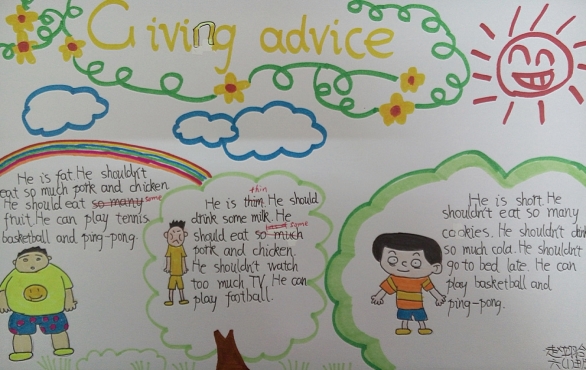 Giving advice
He is fat. He shouldn't
eat so much pork and chicken.
He should eat so many some
fruit. He can play tennis.
basketball and ping-pong.
thin
He is thim. He should
drink some milk. He
some
should eat so much
pork and chicken.
He shouldn't watch
too much TV. He can
play football.
He is short. He
shouldn't eat so many
cookies. He shouldn't drink
so much cola. He shouldn't
go to bed late. He can
play basketball and
ping-pong.